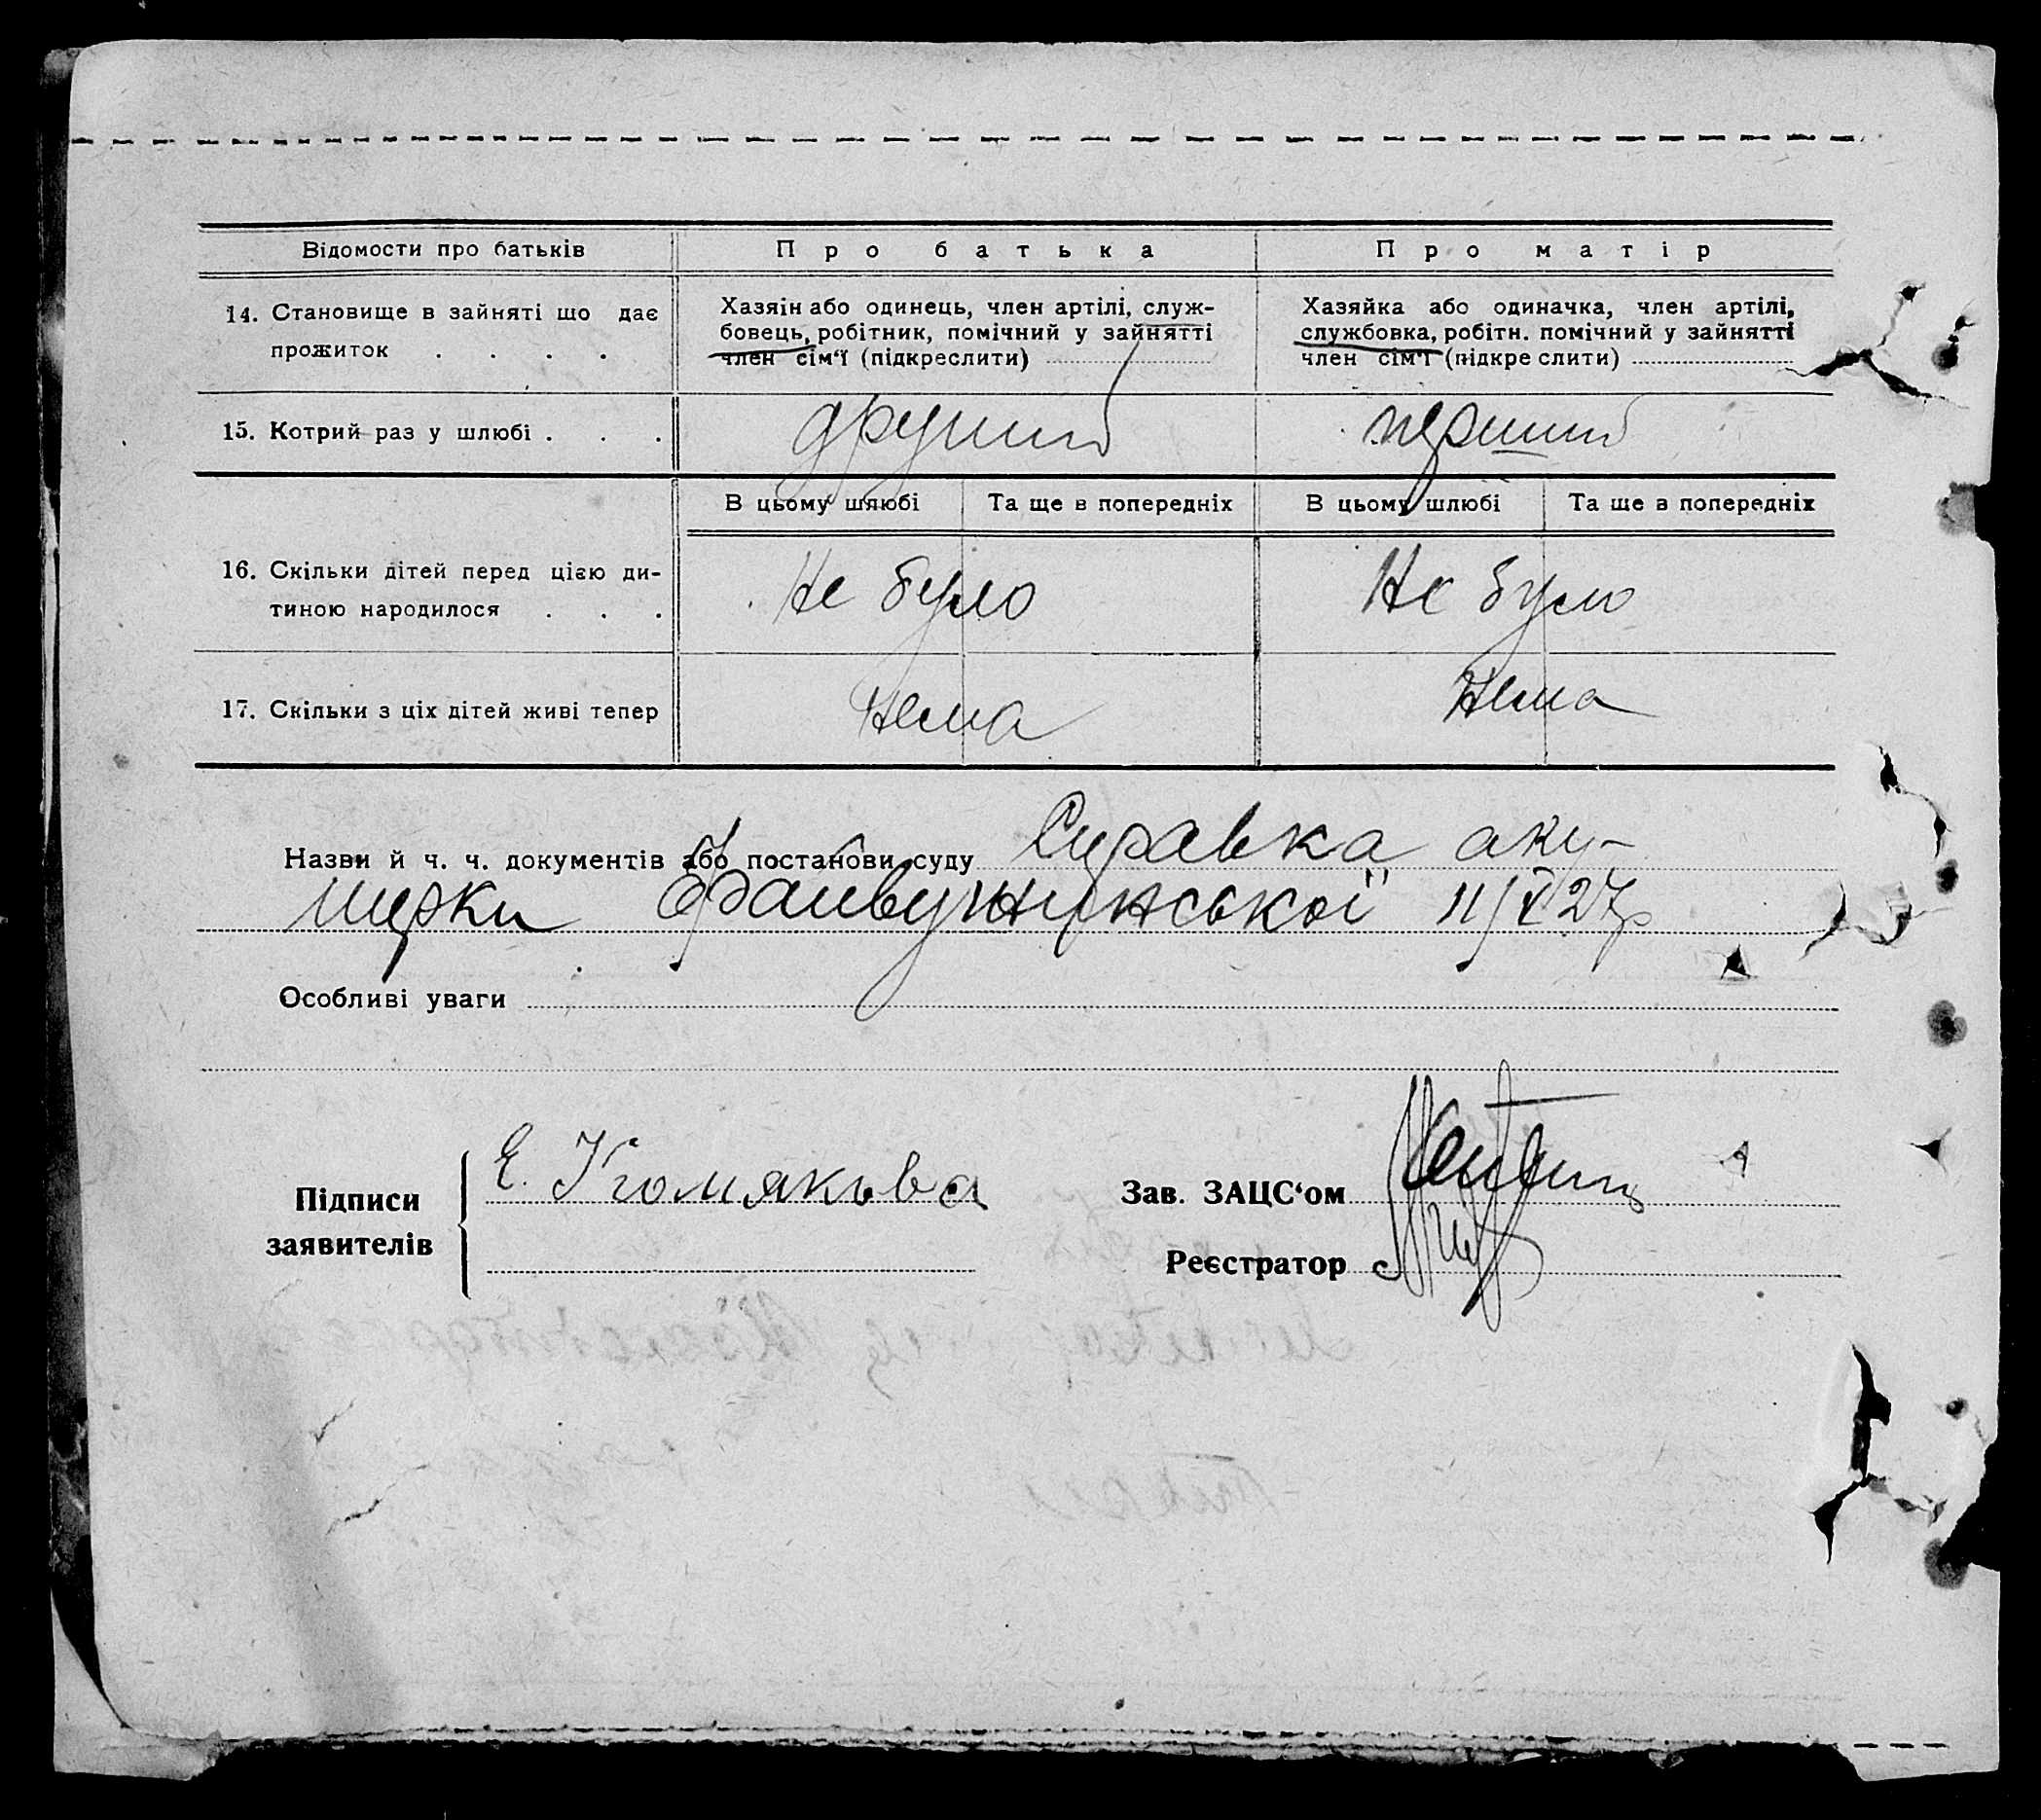 Відомости про батьків
Про батька
Про матір
14. Становище в зайняті що дає
прожиток . . . .
Хазяін або одинець, член артілі, служ-
бовець, робітник, помічний у зайнятті
член сім'ї (підкреслити)
Хазяйка або одиначка, член артілі,
службовка, робітн. помічний у зайнятті
член сім'ї (підкреслити)
15. Котрий раз у шлюбі . . .
другий
перший
В цьому шлюбі
Та ще в попередніх
В цьому шлюбі
Та ще в попередніх
16. Скільки дітей перед цією ди-
тиною народилося . . .
Не було
Не було
17. Скільки з ціх дітей живі тепер
Нема
Нема
Назви й ч. ч. документів або постанови суду Справка аку-
шерки 11/V 27р
Особливі уваги
Підписи
заявителів
Е. Хомякова
Зав. ЗАЦС'ом
Реєстратор